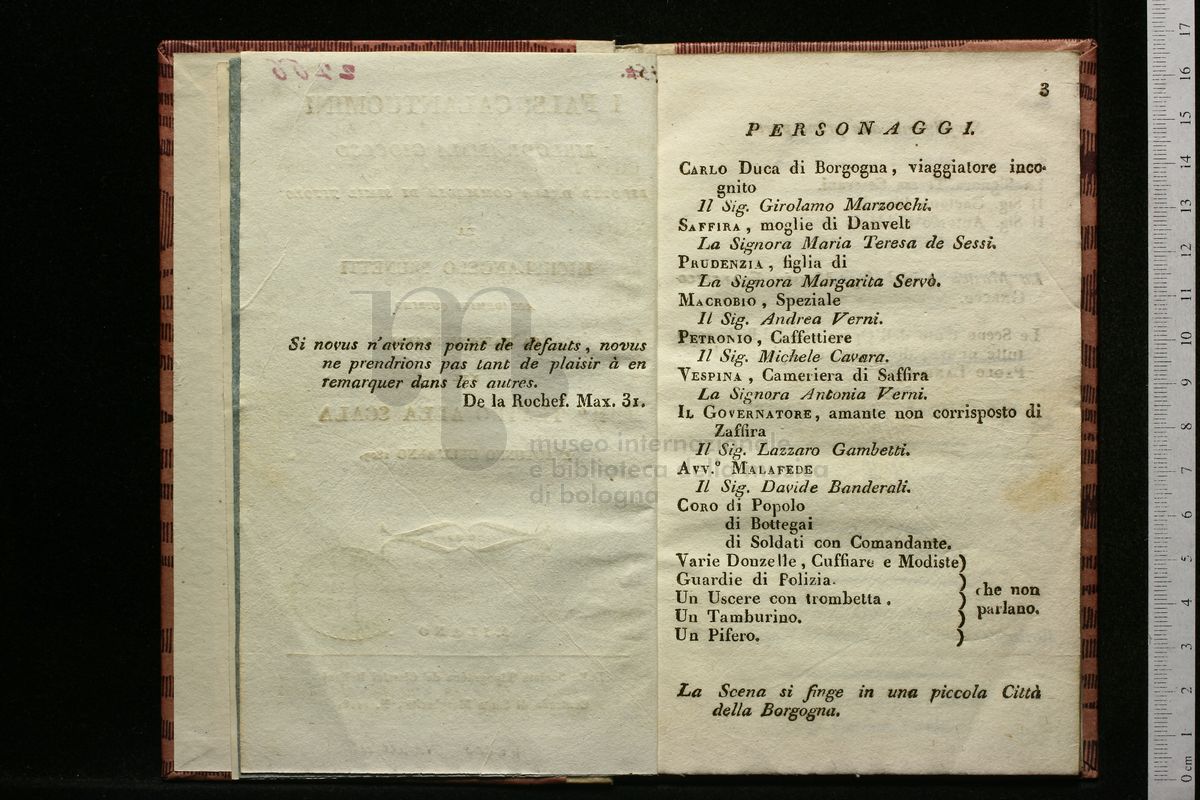 Si novus n'avions point de defauts, novus
ne prendrions pas tant de plaisir à en
remarquer dans les autres.
De la Rochef. Max. 31.
museo internazionale
e biblioteca della musica
di bologna
3
PERSONAGGI.
CARLO Duca di Borgogna, viaggiatore inco-
gnito
Il Sig. Girolamo Marzocchi.
SAFFIRA, moglie di Danvelt
La Signora Maria Teresa de Sessi.
PRUDENZIA, figlia di
La Signora Margarita Servò.
MACROBIO, Speziale
Il Sig. Andrea Verni.
PETRONIO, Caffettiere
Il Sig. Michele Cavara.
VESPINA, Cameriera di Saffira
La Signora Antonia Verni.
IL GOVERNATORE, amante non corrisposto di
Zaffira
Il Sig. Lazzaro Gambetti.
AVV.º MALAFEDE
Il Sig. Davide Banderali.
CORO di Popolo
di Bottegai
di Soldati con Comandante.
Varie Donzelle, Cuffiare e Modiste)
Guardie di Polizia. )
Un Uscere con trombetta. ) che non
Un Tamburino. ) parlano.
Un Pifero. )
La Scena si finge in una piccola Città
della Borgogna.
0 cm 1 2 3 4 5 6 7 8 9 10 11 12 13 14 15 16 17